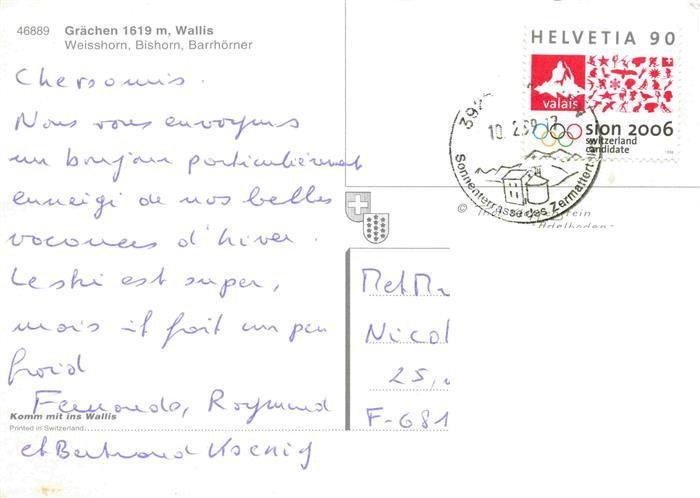 46889 Grächen 1619 m, Wallis
Weisshorn, Bishorn, Barrhörner
Chers amis.
Nous vous envoyons
un bonjour particulièrement
enneigi de nos belles
vacances d'hiver.
Le ski est super,
mais il fait un peu
froid
Fernando, Raymund
et Bertrand Koenig
Komm mit ins Wallis
Printed in Switzerland
HELVETIA 90
valais
sion 2006
switzerland
candidate
10.2.99-17
Sonnenterrasse des Zermattertals
©
Adelboden
Met M
Nicol
25,
F-681